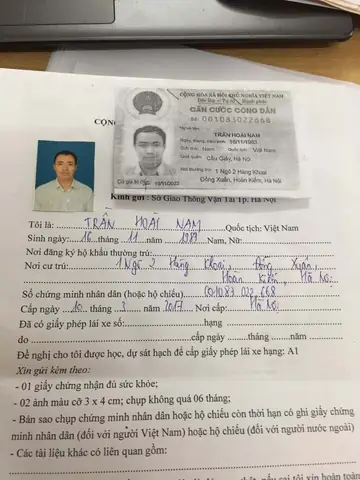 CỘNG HÒA XÃ HỘI CHỦ NGHĨA VIỆT NAM
Độc lập - Tự do - Hạnh phúc
CĂN CƯỚC CÔNG DÂN
Số 001083022668
Họ và tên
TRẦN HOÀI NAM
Ngày, tháng, năm sinh: 16/11/1983
Giới tính: Nam Quốc tịch: Việt Nam
Quê quán: Cầu Giấy, Hà Nội
Nơi thường trú: 1 Ngõ 2 Hàng Khoai
Đồng Xuân, Hoàn Kiếm, Hà Nội
Có giá trị đến: 16/11/2023
CỘNG
Kính gửi : Sở Giao Thông Vận Tải Tp. Hà Nội
Tôi là: TRẦN HOÀI NAM Quốc tịch: Việt Nam
Sinh ngày: 16 tháng 11 năm Nam, Nữ:
Nơi đăng ký hộ khẩu thường trú:
Nơi cư trú: 1 Ngõ 2 Hàng Khoai, Đồng Xuân,
Hoàn Kiếm, Hà Nội
Số chứng minh nhân dân (hoặc hộ chiếu) 001083 022 668
Cấp ngày 10 tháng 3 năm 2017 Nơi cấp: Hà Nội
Đã có giấy phép lái xe số: hạng
do cấp ngày tháng năm
Đề nghị cho tôi được học, dự sát hạch để cấp giấy phép lái xe hạng: A1
Xin gửi kèm theo:
- 01 giấy chứng nhận đủ sức khỏe;
- 02 ảnh màu cỡ 3 x 4 cm; chụp không quá 06 tháng;
- Bản sao chụp chứng minh nhân dân hoặc hộ chiếu còn thời hạn có ghi giấy chứng
minh nhân dân (đối với người Việt Nam) hoặc hộ chiếu (đối với người nước ngoài)
- Các tài liệu khác có liên quan gồm:
nếu sai tôi xin hoàn toàn